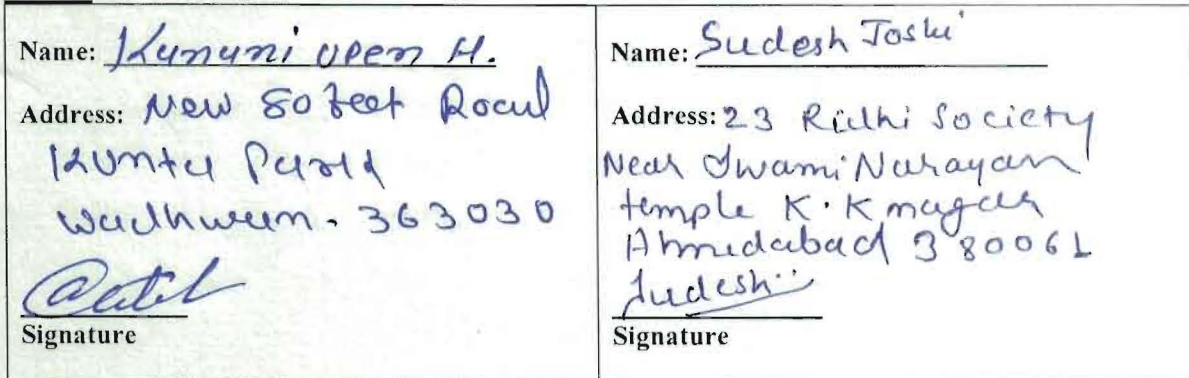 Name: Kanani vpen H.
Address: New 80 feet Road
Kunta Park
Wadhwan. 363030
Signature
Name: Sudesh Joshi
Address: 23 Ridhi Society
Near Swami Narayan
temple K. K nagar
Ahmedabad 380061
Sudesh
Signature